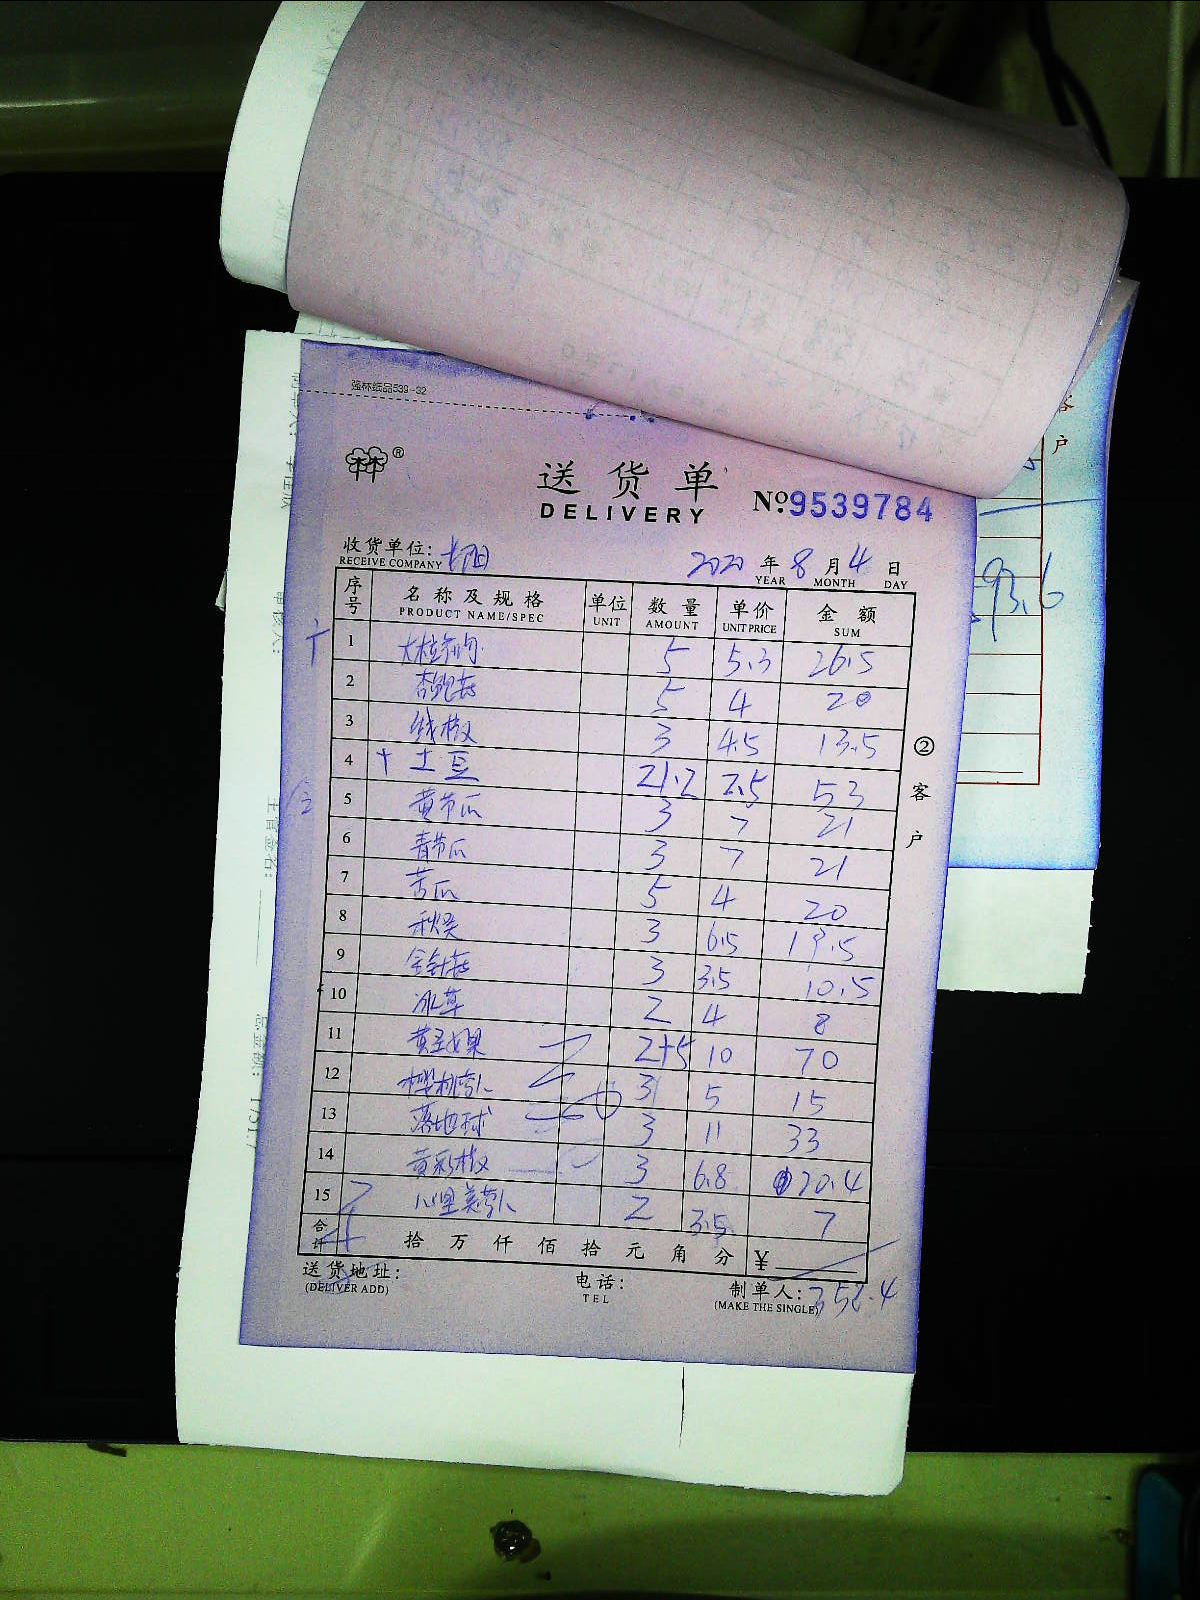 强林纸品539-32
林林®
送货单
DELIVERY
№:9539784
收货单位:
RECEIVE COMPANY
2020 年 8 月 4 日
YEAR MONTH DAY
序号 名称及规格 单位 数量 单价 金额
PRODUCT NAME/SPEC UNIT AMOUNT UNIT PRICE SUM
1 5 5.3 26.5
2 杏鲍菇 5 4 20
3 线椒 3 4.5 13.5
4 土豆 21.2 2.5 53
5 黄节瓜 3 7 21
6 青节瓜 3 7 21
7 苦瓜 5 4 20
8 秋葵 3 6.5 19.5
9 金针菇 3 3.5 10.5
10 冰草 2 4 8
11 黄圣女果 2+5 10 70
12 樱桃萝卜 3 5 15
13 落地球 3 11 33
14 黄彩椒 3 6.8 20.4
15 心里美萝卜 2 3.5 7
合计 拾 万 仟 佰 拾 元 角 分 ¥
送货地址: 电话: 制单人: 358.4
(DELIVER ADD) TEL (MAKE THE SINGLE)
② 客户
客户
93.6